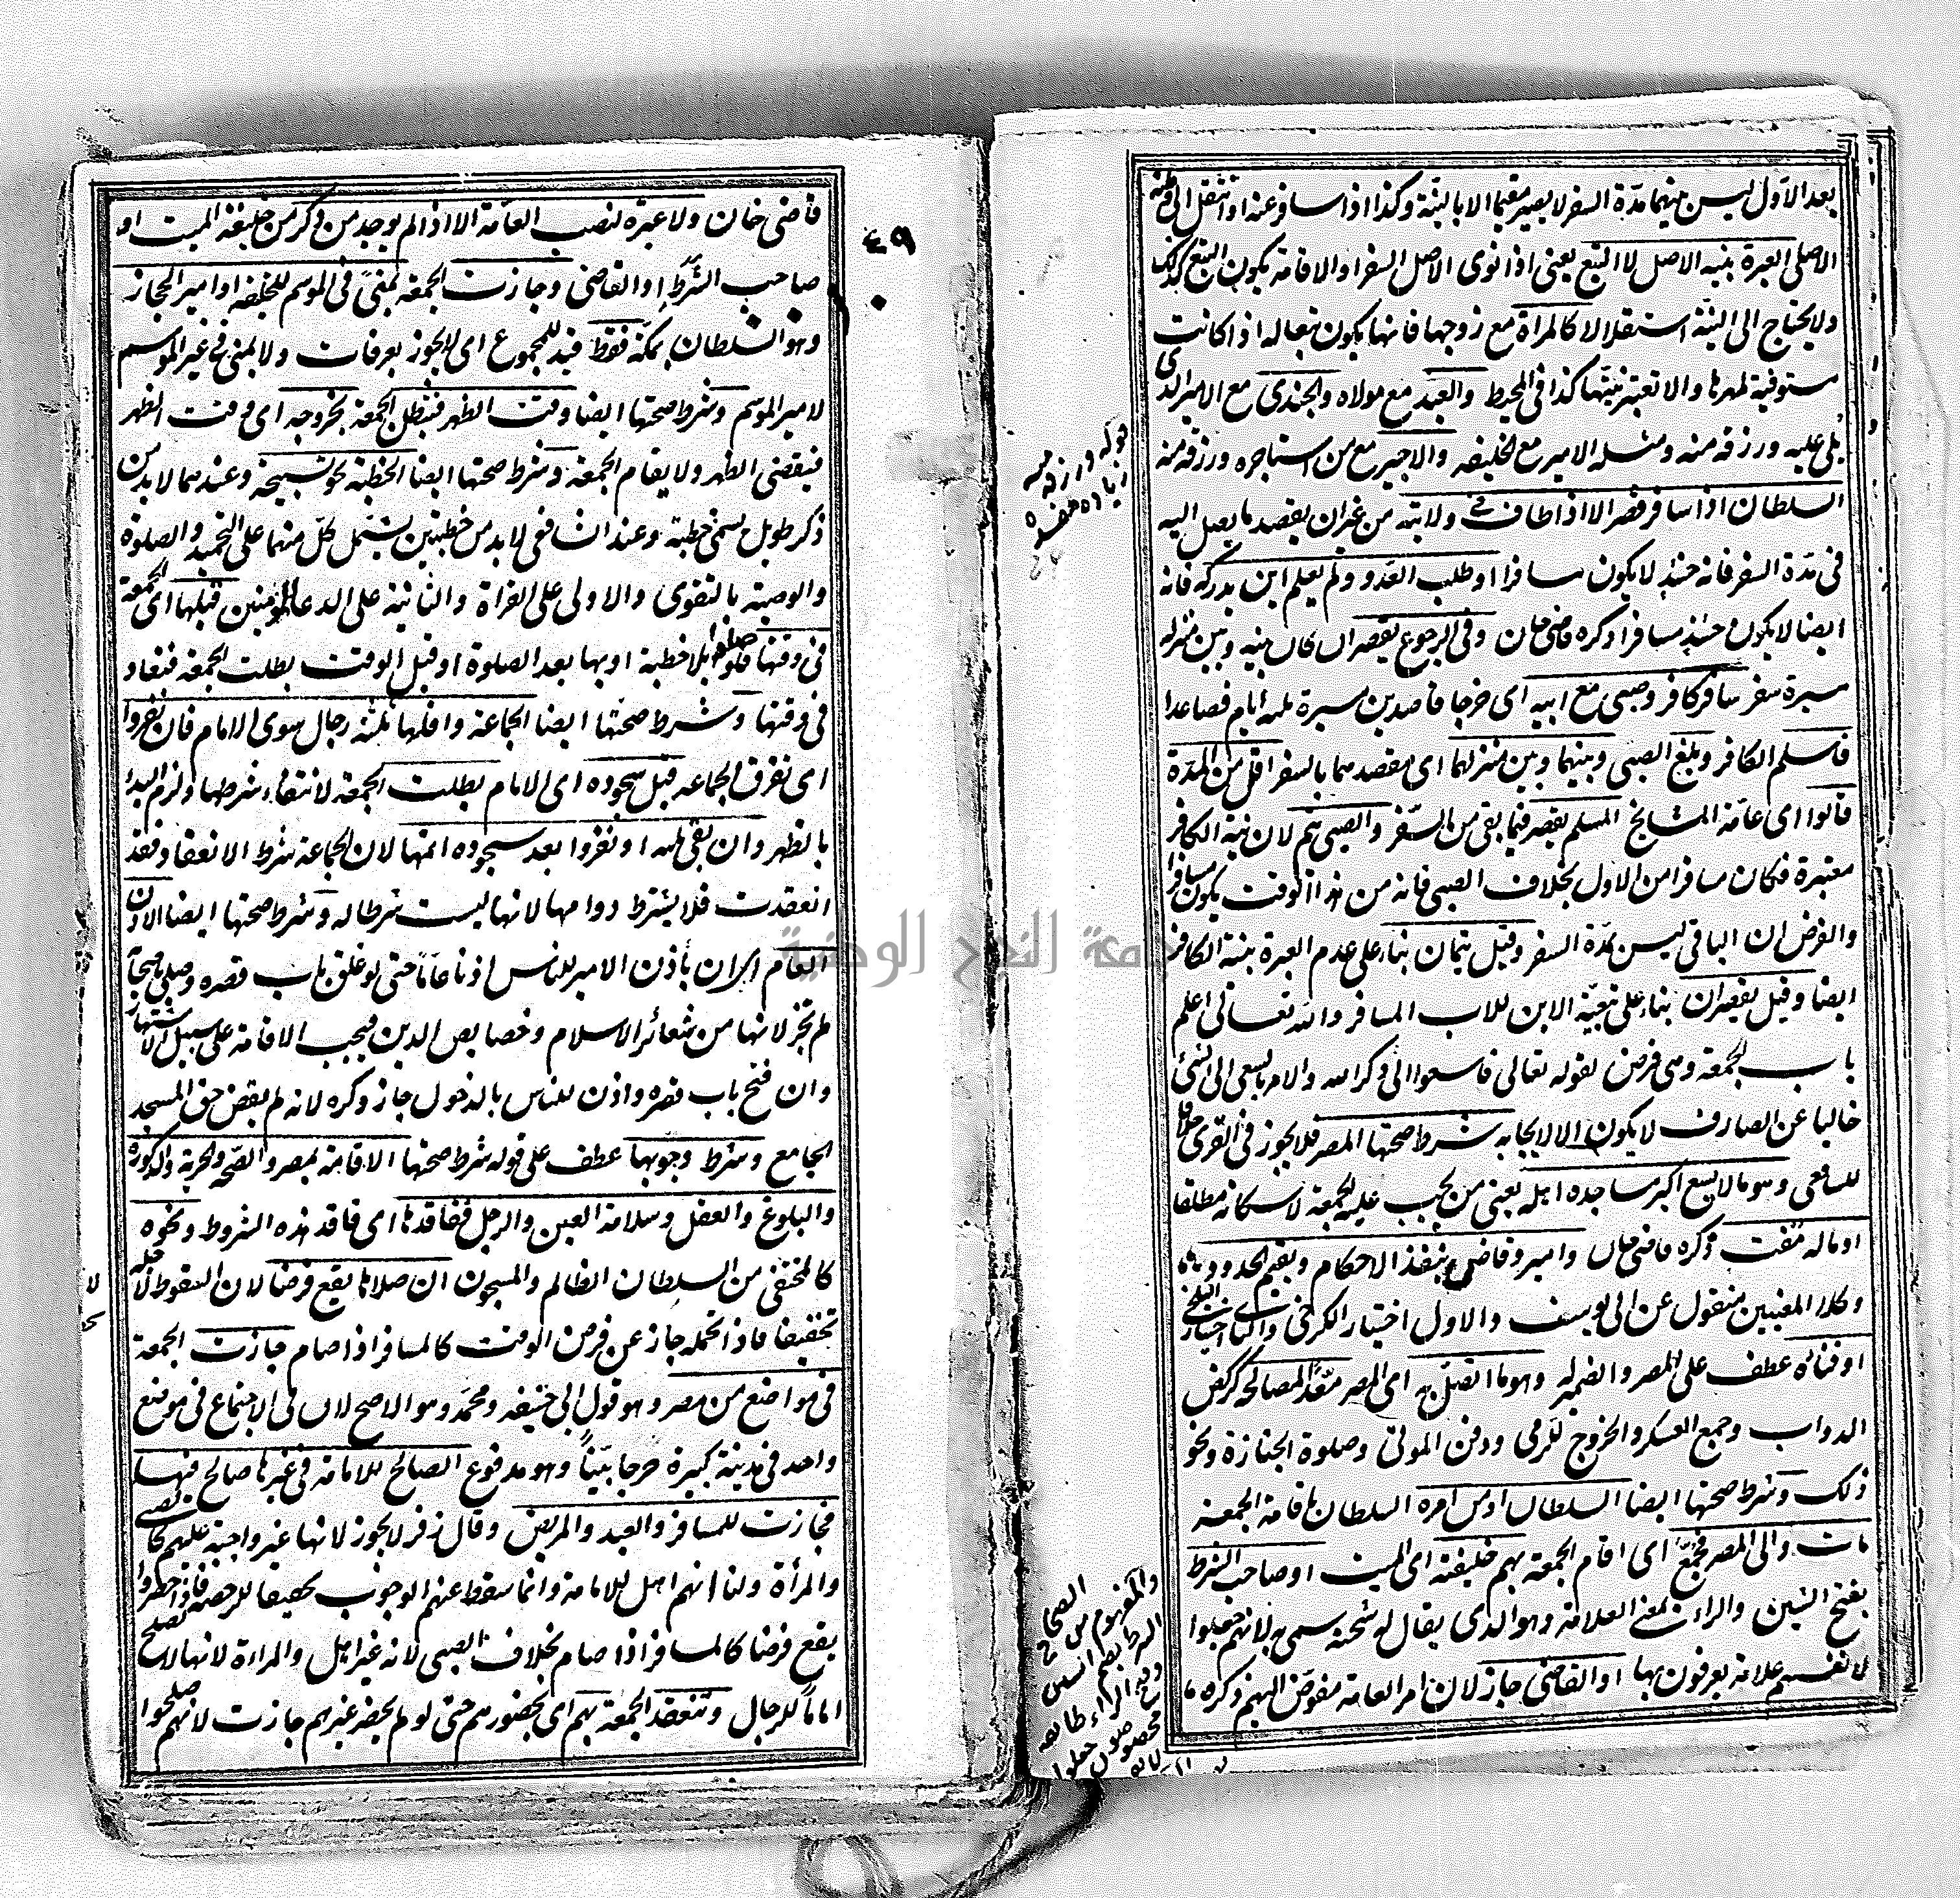 بعد الاول ليس بينهما مدة السفر لا يصير مقيما الا بالنية وكذا اذا سافر عنه او انتقل الى وطنه
الاصلى العبرة بنية الاصل لا التبع يعنى اذا نوى الاصل السفر او الاقامة يكون التبع كذلك
ولا يحتاج الى النية استقلالا كالمراة مع زوجها فانها يكون تبعا له اذا كانت
مستوفية لمهرها والا تعتبر نيتها كذا فى المحيط والعبد مع مولاه والجندى مع الامير الذى
يلى عليه ورزقه منه ومثله الامير مع الخليفه والاجير مع من استاجره ورزقه منه
السلطان اذا سافر قصر الا اذا طاف فى ولايته من غير ان يقصد ما يصل اليه
فى مدة السفر فانه حينئذ لا يكون مسافرا او طلب العدو ولم يعلم اين يدركه فانه
ايضا لا يكون حينئذ مسافرا ذكره قاضى خان وفى الرجوع يقصر ان كان بينه وبين منزله
مسيرة سفر سافر كافر وصبى مع ابيه اى خرجا قاصدين مسيرة ثلثة ايام فصاعدا
فاسلم الكافر وبلغ الصبى وبينهما وبين منزلهما اى مقصدهما بالسفر اقل من المدة
قالوا اى عامة المشايخ المسلم يقصر فيما بقى من السفر والصبى يتم لان نية الكافر
معتبرة فكان مسافرا من الاول بخلاف الصبى فانه من هذا الوقت يكون مسافرا
والفرض ان الباقى ليس مدة السفر وقيل يتمان بناء على عدم العبرة بنية الكافر
ايضا وقيل يقصران بناء على تبعية الابن للاب المسافر والله تعالى اعلم
باب الجمعة وهى فرض لقوله تعالى فاسعوا الى ذكر الله والامر بالسعى الى الشئ
خاليا عن الصارف لا يكون الا لايجابه شرط صحتها المصر فلا يجوز فى القرى خلافا
للشافعى وهو ما لا يسع اكبر مساجده اهله يعنى من يجب عليه الجمعة لا سكانه مطلقا
او ماله مفت ذكره قاضى خان وامير وقاض ينفذ الاحكام ويقيم الحدود
وكلا المعنيين منقول عن ابى يوسف والاول اختيار الكرخى والثانى اختيار الثلجى
او فناؤه عطف على المصر والضمير له وهو ما اتصل به اى المصر معدا لمصالحه كركض
الدواب وجمع العسكر والخروج للرمى ودفن الموتى وصلوة الجنازة ونحو
ذلك وشرط صحتها ايضا السلطان او من امره السلطان باقامة الجمعة
مات والى المصر فجمع اى اقام الجمعة بهم خليفته اى الميت او صاحب الشرط
بفتح الشين والراء بمعنى العلامة وهو الذى يقال له شحنه سمى به لانهم جعلوا
لانفسهم علامة يعرفون بها او القاضى جاز لان امر العامة مفوض اليهم ذكره
قوله ورزقه منه
والمفهوم من الصحاح
الشرط بضم الشين
وفتح الراء طائفة
٤٩
قاضى خان ولا عبرة لنصب العامة الا اذا لم يوجد من ذكر من خليفة الميت او
صاحب الشرط او القاضى وجازت الجمعة بمنى فى الموسم للخليفه او امير الحجاز
وهو السلطان بمكة فقط قيد للمجموع اى لا يجوز بعرفات ولا بمنى فى غير الموسم
لامير الموسم وشرط صحتها ايضا وقت الظهر فتبطل الجمعة بخروجه اى وقت الظهر
فيقضى الظهر ولا يقام الجمعة وشرط صحتها ايضا الخطبة نحو تسبيحة وعندهما لا بد من
ذكر طويل يسمى خطبة وعند الشافعى لا بد من خطبتين يشتمل كل منهما على التحميد والصلوة
والوصية بالتقوى والاولى على القراة والثانية على الدعا للمؤمنين قبلها اى الجمعة
فى وقتها فلو صلوا بلا خطبة او بها بعد الصلوة او قبل الوقت بطلت الجمعة فتعاد
فى وقتها وشرط صحتها ايضا الجماعة واقلها ثلثة رجال سوى الامام فان نفروا
اى تفرق الجماعه قبل سجوده اى الامام بطلت الجمعة لانتفاء شرطها ولزم البدا
بالظهر وان بقى ثلثة او نفروا بعد سجوده اتمها لان الجماعة شرط الانعقاد وقد
انعقدت فلا يشترط دوامها لانها ليست شرطا له وشرط صحتها ايضا الاذن
العام اى ان ياذن الامير للناس اذنا عاما حتى لو غلق باب قصره وصلى باصحابه
لم يجز لانها من شعائر الاسلام وخصايص الدين فيجب الاقامة على سبيل الاشتهار
وان فتح باب قصره واذن للناس بالدخول جاز وكره لانه لم يقض حق المسجد
الجامع وشرط وجوبها عطف على قوله شرط صحتها الاقامة بمصر والصحة والحرية والذكورة
والبلوغ والعقل وسلامة العين والرجل ففاقدها اى فاقد هذه الشروط ونحوه
كالمختفى من السلطان الظالم والمسجون ان صلاها يقع فرضا لان السقوط لاجله
تخفيفا فاذا تحمله جاز عن فرض الوقت كالمسافر اذا صام جازت الجمعة
فى مواضع من مصر وهو قول ابى حنيفه ومحمد وهو الاصح لان فى الاجتماع فى موضع
واحد فى مدينة كبيرة حرجا بينا وهو مدفوع الصالح للامامة فى غيرها صالح فيها
فجازت للمسافر والعبد والمريض وقال زفر لا يجوز لانها غير واجبة عليهم كالصبى
والمرأة ولنا انهم اهل للامامة وانما سقط عنهم الوجوب تخفيفا للرخصة فاذا حضروا
يقع فرضا كالمسافر اذا صام بخلاف الصبى لانه غير اهل والمراءة لانها لا تصلح
اماما للرجال وتنعقد الجمعة بهم اى بحضورهم حتى لو لم يحضر غيرهم جازت لانهم صلحوا
جامعة النجاح الوطنية